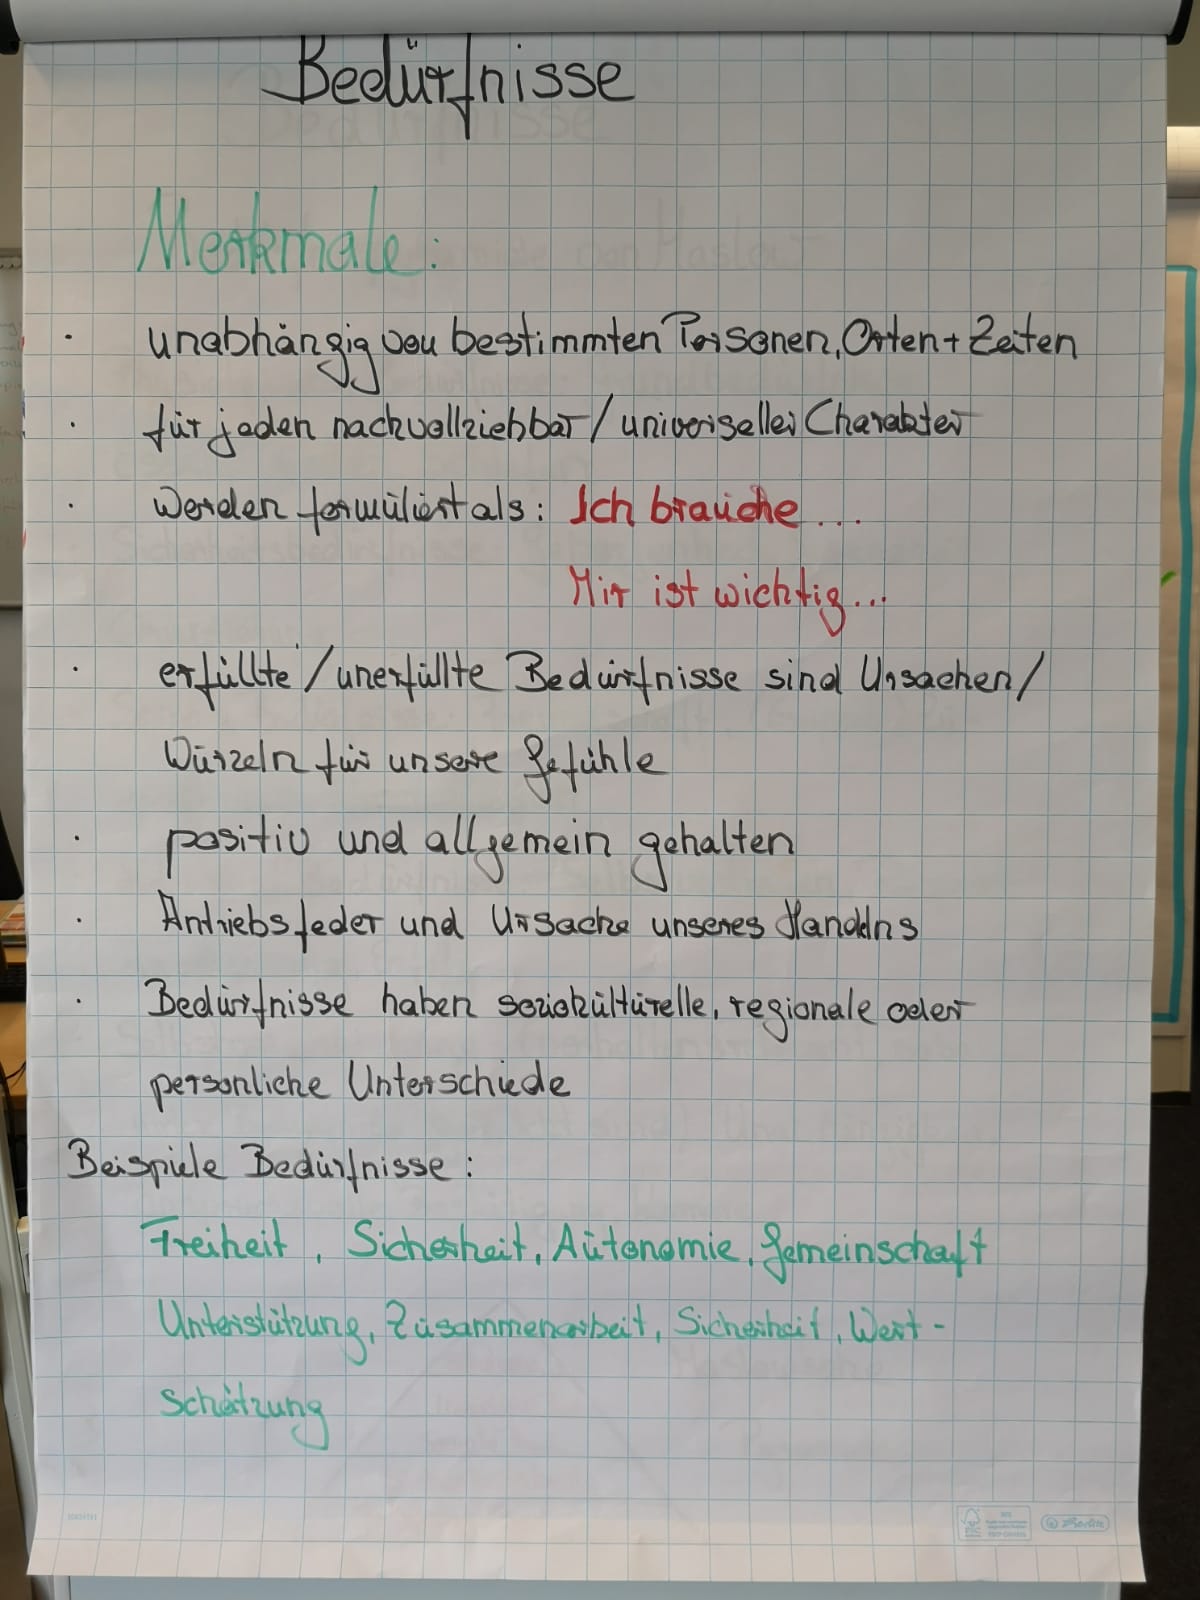 Bedürfnisse
Merkmale:
· unabhängig von bestimmten Personen, Orten + Zeiten
· für jeden nachvollziehbar / universeller Charakter
· Werden formuliert als: Ich brauche...
Mir ist wichtig...
· erfüllte / unerfüllte Bedürfnisse sind Ursachen /
Wurzeln für unsere Gefühle
· positiv und allgemein gehalten
· Antriebsfeder und Ursache unseres Handelns
· Bedürfnisse haben soziokulturelle, regionale oder
persönliche Unterschiede
Beispiele Bedürfnisse:
Freiheit, Sicherheit, Autonomie, Gemeinschaft
Unterstützung, Zusammenarbeit, Sicherheit, Wert-
schätzung